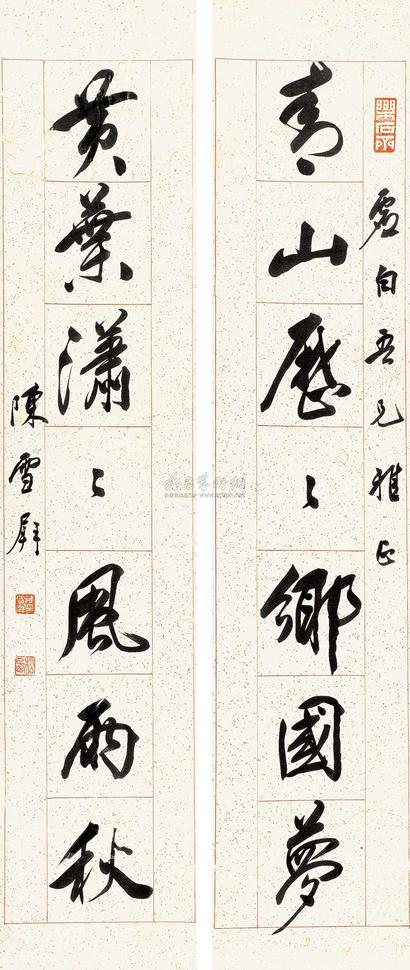 虛白吾兄雅正
青山歷〻鄉國夢
黃葉瀟〻風雨秋
陳雪屏